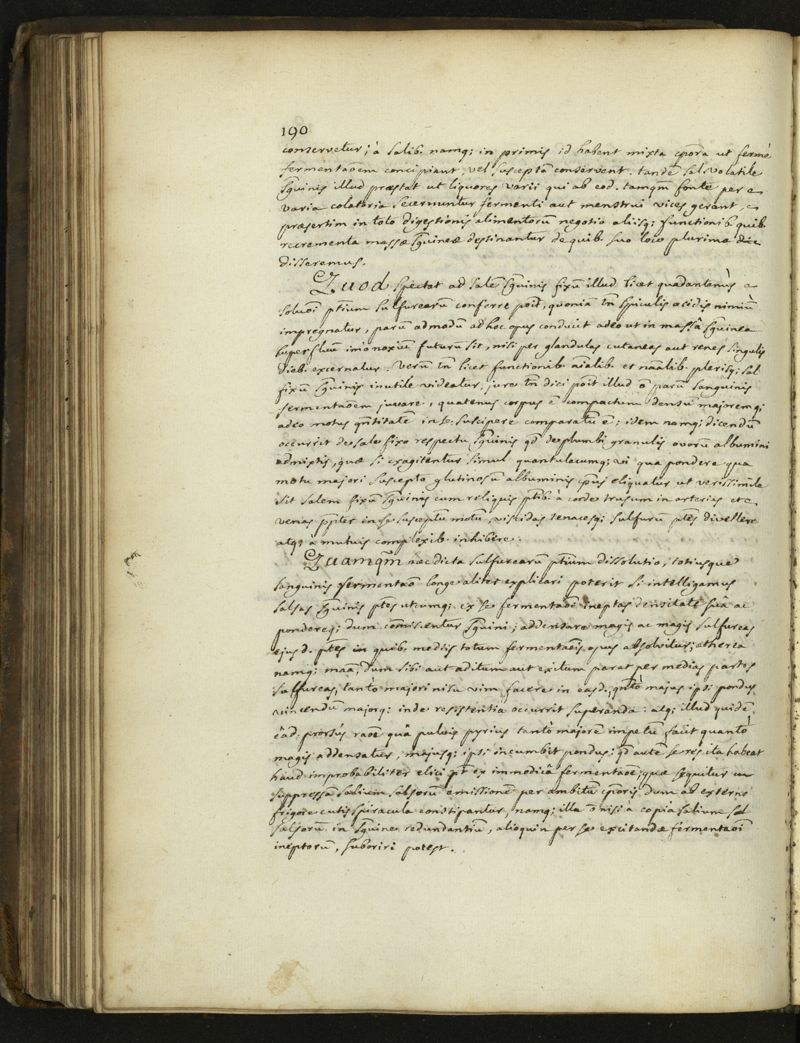 190
conservetur; à salib. namq; in primis id habent mixta cpora ut ferme
fermentaõem concipiant, vel susceptã conservent. tandẽ sal volatile
sguinis illud præstat ut liquores varii qui ab eod. tamqm fonte per
varia colatoria secernuntur fermenti aut menstrui vices gerant,
præsertim in toto digestionis alimentorũ negotio aliisq; functionib. quib.
recrementa massæ sguineæ destinantur de quib. suo loco plurima
disseremus.
Quod spectat ad salẽ sguinis fixũ illud licet quadantenùs
soluõi ptium sulfurearũ conferre poit, quoniã tn spiculis acidis nimiũ
impregnatur, parũ admodũ ad hoc opus conducit adeo ut in massâ sguinea
superfluũ imo noxiũ futurũ sit, nisi per glandulas cutaneas aut renes singulis
dieb. excernatur. verũ tn licet functionib. aialib. et naãlib. plerisq; sal
fixũ sguinis inutile videatur, jure tn dici poit illud õ parũ sanguinis
fermentaõem juvare, quatenus corpus ẽ compactum densũ majoremq;
adeo motus qtitatẽ in se suscipere comparatũ ẽ; idem namq; dicendũ
occurrit de sale fixo respectu sguinis qd de plumbi granulis ovorũ albumini
admixtis, quæ si exagitentur simul quantulacumq; vi qua pondere qua
motu majori suscepto glutinosũ albuminis cpus eliquatur ut verisimile
sit salem fixũ sguinis cum reliquis ptib. à corde trusum in arterias et
venas ppter in se susceptũ motũ, viscidas tenacesq; sulfurũ ptes divellere
atq; a mutuis complexib. inhibere.
Quamqm hæc dicta sulfurearũ ptium dissolutio, totiusque
sanguinis fermentaõ longe aliter explicari poterit si intelligamus
salsas sguinis ptes utcumq; ex se fermentaõi ineptas densitate suâ ac
pondereq; dum comiscentur sguini; addensare magis ac magis sulfureas
ejusd. ptes in quib. mediis totum fermentaõis opus absolvitur; etherea
namq; maã, dum sibi aut aditum aut exitum parat per medias partes
sulfureas, tanto majori nisu vim facere in easd., qto majus ipsi pondus
vincendũ majorq; inde resistentia occurrit superanda. atq; illud quidẽ
eâd. prorsùs raõe quâ pulvis pyrius tantò majorẽ impetũ facit quantò
magis addensatur, majusq; ipsi incumbit pondus; qd autẽ se res ita habeat
haud improbabiliter elici pt ex immodicâ fermentaõe, quæ sequitur
suppressã salium salsorũ emissionẽ per ambitũ cporis, dum ab externo
frigore cutis spiracula constipantur, namq; illa õ nisi à copia salium
salsorũ in sguine redundantiũ, alioquin per se excitandæ fermentaõi
ineptorũ, suboriri potest.